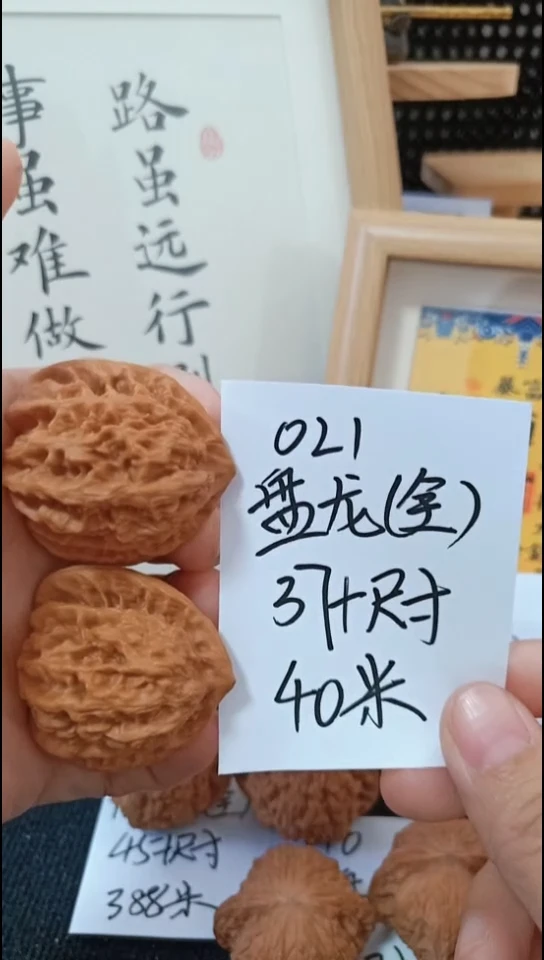 路虽远行
事虽难做
021
盘龙(全)
37+尺寸
40米
45+尺寸
388米